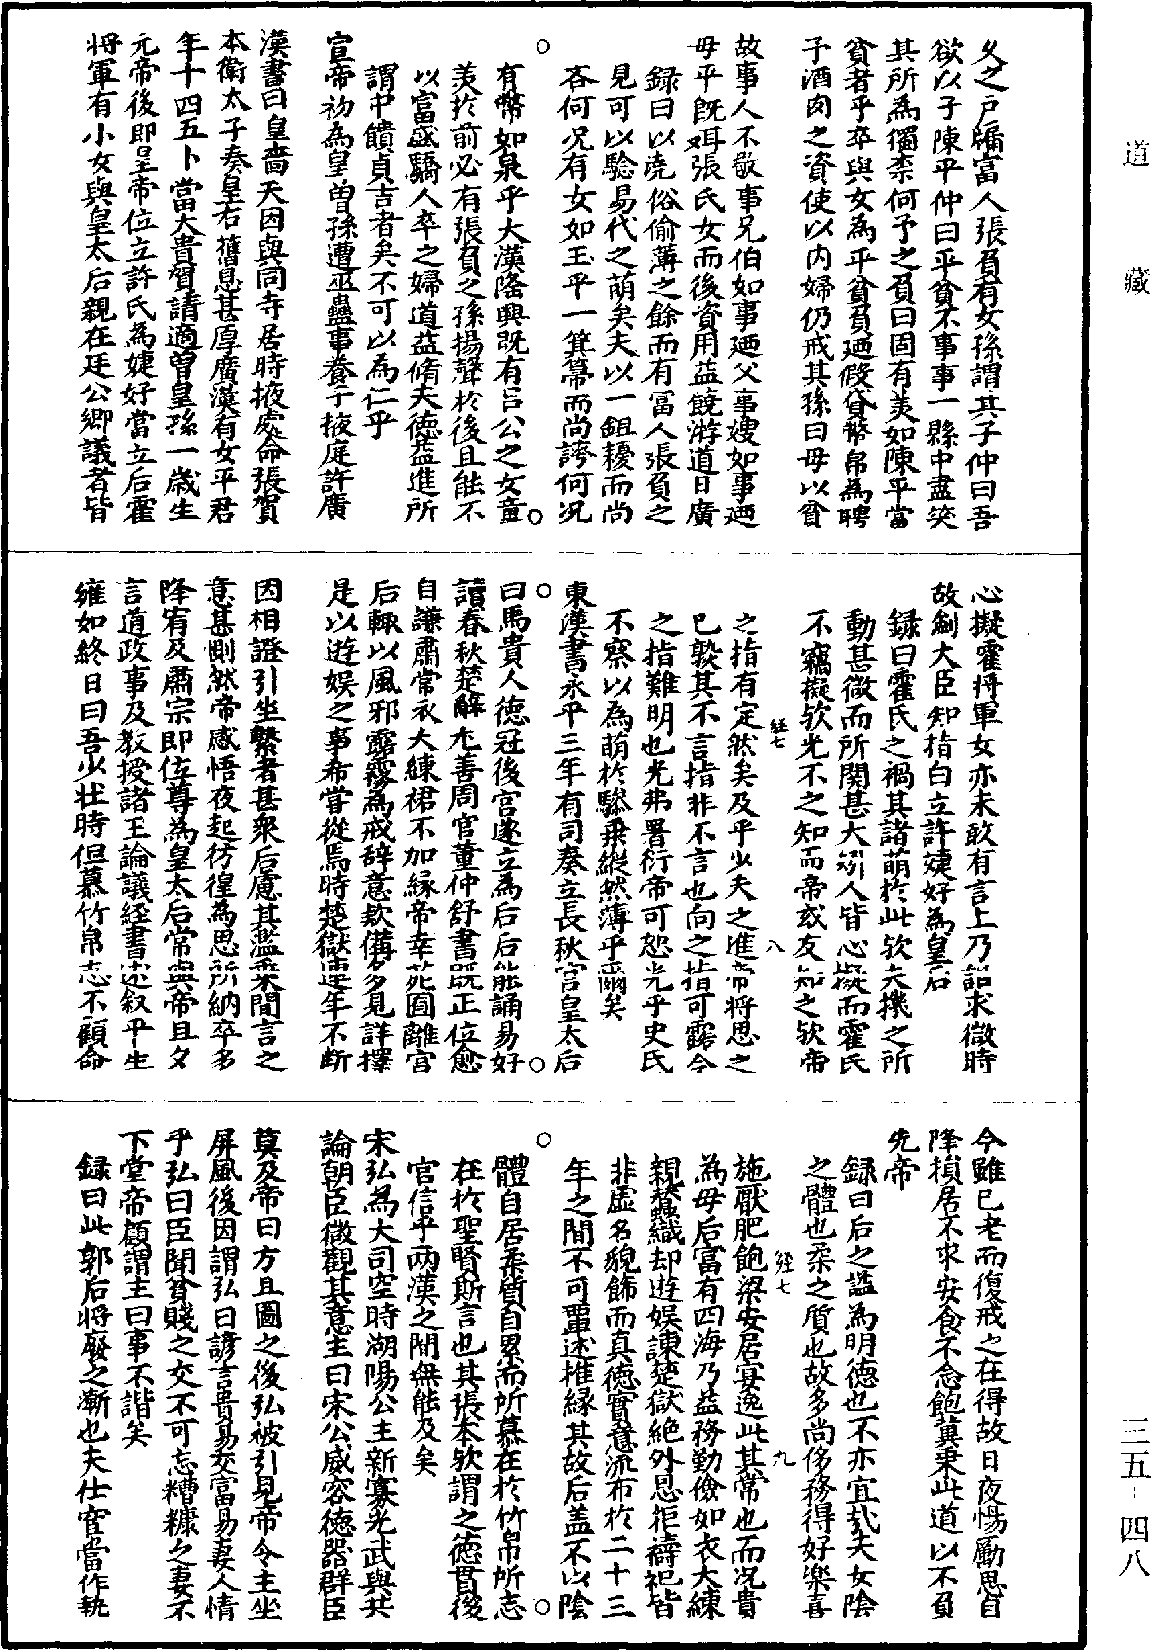 久之戶牖富人張負有女孫謂其子仲曰吾
欲以子陳平仲曰平貧不事事一縣中盡笑
其所為獨柰何予之負曰固有美如陳平當
貧者乎卒與女為平貧負廼假貸幣帛為聘
予酒肉之資使以內婦仍戒其孫曰毋以貧
故事人不敬事兄伯如事廼父事嫂如事廼
毋平旣娶張氏女而後資用益饒游道日廣
録曰以堯俗偷薄之餘而有富人張負之
見可以驗易代之萌矣夫以一鉏耰而尚
吝何况有女如玉乎一箕箒而尚誇何况
有幣如泉乎大漢隆興既有呂公之女童
美於前必有張負之孫揚聲於後且能不
以富盛驕人卒之婦道益脩夫德益進所
謂中饋貞吉者矣不可以為仁乎
宣帝初為皇曾孫遭巫蠱事養于掖庭許廣
漢書曰皇嗇夫因與同寺居時掖處命張賀
本衛太子奏皇右舊恩甚厚廣漢有女平君
年十四五卜當大貴賀請適曾皇孫一歲生
元帝後即皇帝位立許氏為婕妤當立后霍
將軍有小女與皇太后親在廷公卿議者皆
心擬霍將軍女亦未敢有言上乃詔求微時
故劍大臣知指白立許婕妤為皇后
録曰霍氏之禍其諸萌於此欤夫機之所
動甚微而所關甚大矧人皆心擬而霍氏
不竊擬欤光不之知而帝或友知之欤帝
經七 八
之指有定然矣及乎少夫之進帝將思之
已歘其不言指非不言也向之指可露今
之指難明也光弗署衍帝可恕光乎史氏
不察以為萌於驂乘縱然薄乎爾矣
東漢書永平三年有司奏立長秋宮皇太后
曰馬貴人德冠後宮遂立為后后能誦易好
讀春秋楚辭尤善周官董仲舒書既正位愈
自謙肅常衣大練裙不加緣帝幸苑囿離宮
后輒以風邪露霧為戒辭意欵備多見詳擇
是以遊娛之事希嘗從焉時楚獄連年不斷
因相證引坐繫者甚衆后慮其濫乘間言之
意甚惻然帝感悟夜起彷徨為思所納卒多
降宥及肅宗即位尊為皇太后常與帝旦夕
言道政事及教授諸王論議經書述叙平生
雍如終日曰吾少壯時但慕竹帛志不顧命
今雖已老而復戒之在得故日夜惕勵思自
降損居不求安食不念飽冀乘此道以不負
先帝
録曰后之諡為明德也不亦宜哉夫女陰
之體也柔之質也故多尚侈務得好樂喜
經七 九
施厭肥飽梁安居宴逸此其常也而况貴
為母后富有四海乃益務勤儉如衣大練
親蠶織却遊娛諫楚獄絶外恩拒禱祀皆
非虛名貌飾而真德實意流布於二十三
年之間不可單述推緣其故后蓋不以陰
體自居柔質自累而所慕在於竹帛所志
在於聖賢斯言也其張本欤謂之德貫後
官信乎两漢之間無能及矣
宋弘為大司空時湖陽公主新寡光武與共
論朝臣微觀其意主曰宋公威容德器群臣
莫及帝曰方且圖之後弘被引見帝令主坐
屏風後因謂弘曰諺言貴易交富易妻人情
乎弘曰臣聞貧賤之交不可忘糟糠之妻不
下堂帝顧謂主曰事不諧矣
録曰此郭后將廢之漸也夫仕宦當作執
道藏
三五—四八